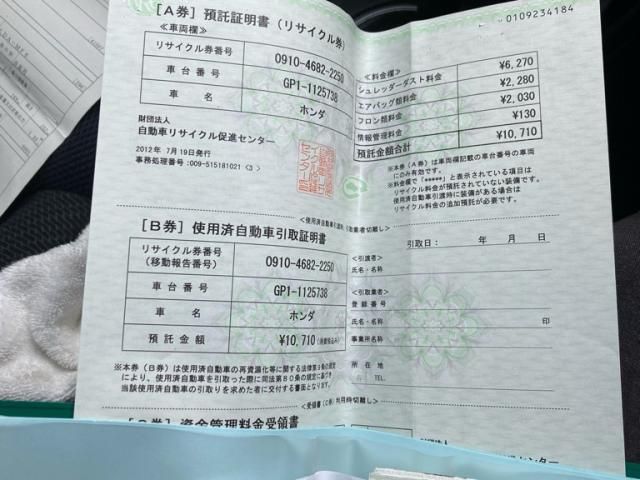 0109234184
[A券] 預託証明書 (リサイクル券)
≪車両欄≫
リサイクル券番号 0910-4682-2250
車台番号 GP1-1125738
車名 ホンダ
≪料金欄≫
シュレッダーダスト料金 ¥6,270
エアバッグ類料金 ¥2,280
フロン類料金 ¥2,030
情報管理料金 ¥130
預託金額合計 ¥10,710
財団法人
自動車リサイクル促進センター
2012年 7月19日発行
事務処理番号:009-515181021 <3>
※本券(A券)は車両欄記載の車台番号の車両
にのみ有効です。
※料金欄で「*****」と表示されている項目は
リサイクル料金が預託されていない装備です。
使用済自動車引渡時に装備がある場合は
リサイクル料金の追加預託が必要です。
[B券] 使用済自動車引取証明書
引取日: 年 月 日
リサイクル券番号
(移動報告番号) 0910-4682-2250
車台番号 GP1-1125738
車名 ホンダ
預託金額 ¥10,710(消費税込み)
≪引渡者≫
氏名・名称
≪引取業者≫
登録番号
氏名・名称 印
事業所名
所在地
TEL.
※本券(B券)は使用済自動車の再資源化等に関する法律第9条の規定
により、使用済自動車を引取った際に同法第80条の規定に基づき
当該使用済自動車の引取りを求めた者に交付する書面となります。
資金管理料金受領書